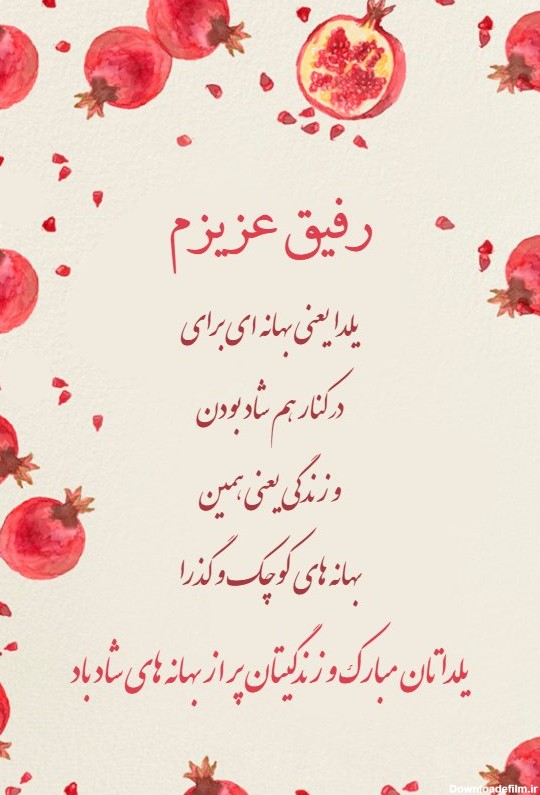 رفیق عزیزم
یلدا یعنی بهانه ای برای
در کنار هم شاد بودن
و زندگی یعنی همین
بهانه های کوچک و گذرا
یلداتان مبارک و زندگیتان پر از بهانه های شاد باد
Downloadefilm.ir